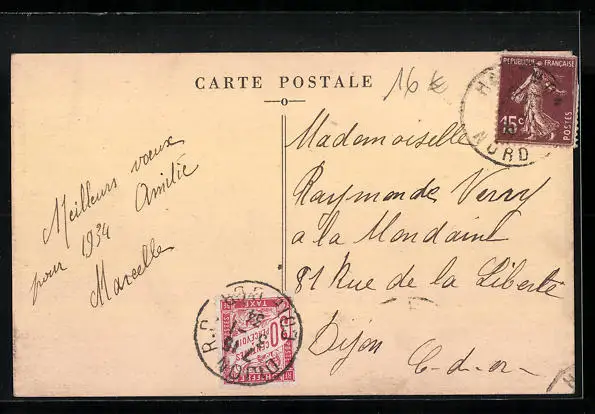 CARTE POSTALE
16 €
REPUBLIQUE FRANÇAISE
15c
POSTES
NORD
Meilleurs vœux
pour 1934 Amitié
Marcelle
Mademoiselle
Raymonde Verry
a la Mondaine
81 Rue de la Liberté
Dijon C-d-or
TAXE
A PERCEVOIR
30
CENTIMES